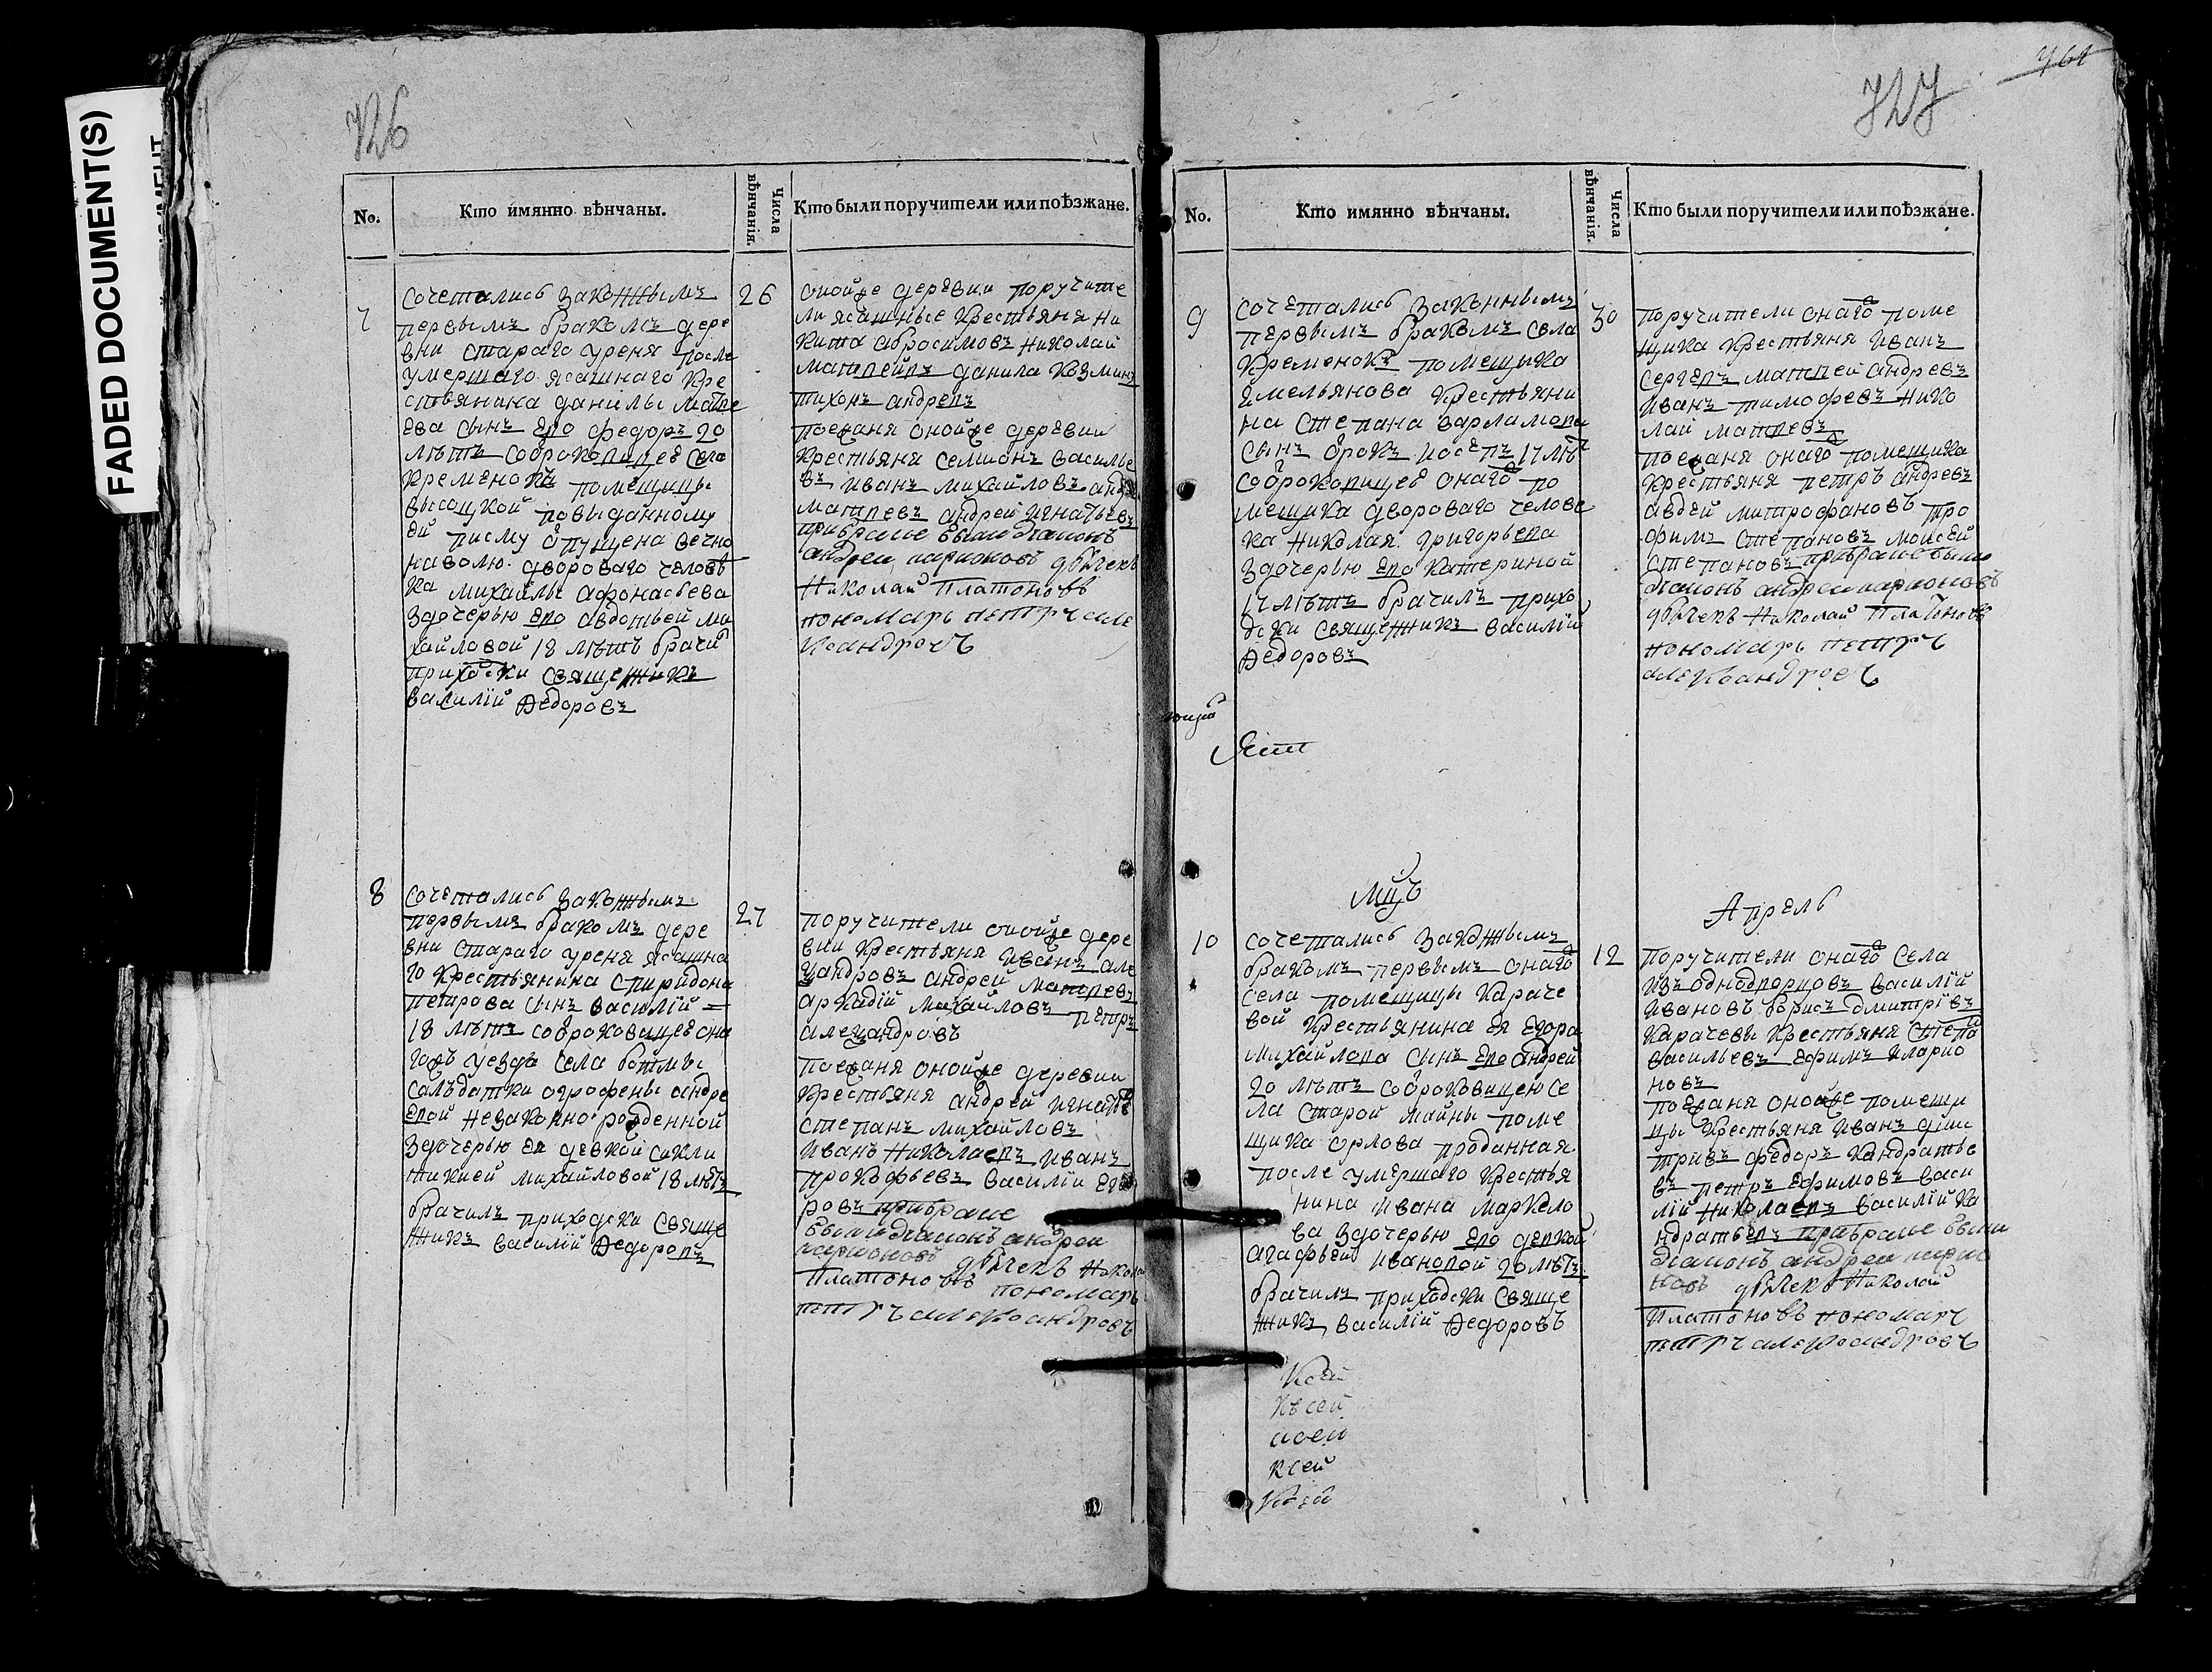 FADED DOCUMENT(S)
726
No.
Кто имянно вѣнчаны.
Числа вѣнчанія.
Кто были поручители или поѣзжане.
7
сочетались законнымъ
первымъ бракомъ дере
вни стараго уреня после
умершаго ясашнаго кре
стьянина данилы матве
ева сынъ ево федоръ 20
лѣтъ собрачовшуюся села
кременокъ помещицы
высоцкой повыданному
ей писму опущена вечно
наволю двороваго человѣ
ка михайлы афонасьева
здочерью ево авдотьей ми
хайловой 18 лѣтъ брачил
приходски священникъ
василій Федоровъ
26
оной же деревни поручите
ли ясашные крестьяня ни
кита абросимовъ николай
матвеивъ данила козминъ
тихонъ андревъ
поезжаня оной же деревни
крестьяня семионъ василье
въ иванъ михайловъ андрей
матвевъ андреи игнатьевъ
прибраке были диаконъ
андреи ларионовъ дьячекъ
Николай Платоновъ
пономарь петръ але
ксандровъ
8
сочетались законнымъ
первымъ бракомъ дере
вни стараго уреня ясашна
го крестьянина спиридона
петрова сынъ василій =
18 лѣтъ
уезда села
салъдатки огрофены андре
евой незаконно рожденной
здочерью ея девкой сикли
тикией михайловой 18 лѣтъ
брачилъ приходски свяще
нникъ василій Федоровъ
27
поручители оной же дере
вни крестьяня иванъ але
ксандровъ андреи матвевъ
аркадій михайловъ петръ
александровъ
поезжаня оной же деревни
крестьяня андрей игнатьевъ
степанъ михайловъ
иванъ николаевъ иванъ
прокофьевъ василіи его
ровъ прибраке
были диаконъ андреи
ларионовъ дьячекъ Никола
Платоновъ пономарь
петръ александровъ
727
No.
Кто имянно вѣнчаны.
Числа вѣнчанія.
Кто были поручители или поѣзжане.
9
сочетались законнымъ
первымъ бракомъ села
кременокъ помещика
емельянова крестьяни
на степана варламова
сынъ 17 лѣт
онаго по
мещика дворового челове
ка николая григорьева
здочерью ево катериной
17 лѣтъ брачилъ прихо
дски священникъ василій
Федоровъ
30
поручители онаго поме
щика крестьяня иванъ
сергевъ матвей андревъ
иванъ тимофевъ нико
лай матвевъ
поезжаня онаго помещика
крестьяня петръ андревъ
авдей митрофановъ тро
фимъ степановъ моисей
степановъ прибраке были
диаконъ андреи ларионовъ
дьячекъ Николай Платоновъ
пономарь петръ
александровъ
мцъ
Апрель
10
сочетались законнымъ
бракомъ первымъ онаго
села помещицы караче
вой крестьянина ея егора
михайлова сынъ ево андрей
20 лѣтъ се
ла старой майны поме
щика орлова проданная
после умершаго крестья
нина ивана маркело
ва здочерью ево девкой
агафьей ивановой 20 лѣтъ
брачилъ приходски свяще
нникъ василій Федоровъ
12
поручители онаго села
изъ однодворцовъ василій
ивановъ борисъ дмитріевъ
карачевы крестьяня степа
васильевъ ефимъ иларио
новъ
поезжаня оной же помещи
цы крестьяня иванъ дми
тривъ федоръ кандратье
въ петръ ефимовъ васи
лій николаевъ василій ка
ндратьевъ прибраке были
диаконъ андреи ларио
новъ дьячекъ Николай
Платоновъ пономарь
петръ александровъ